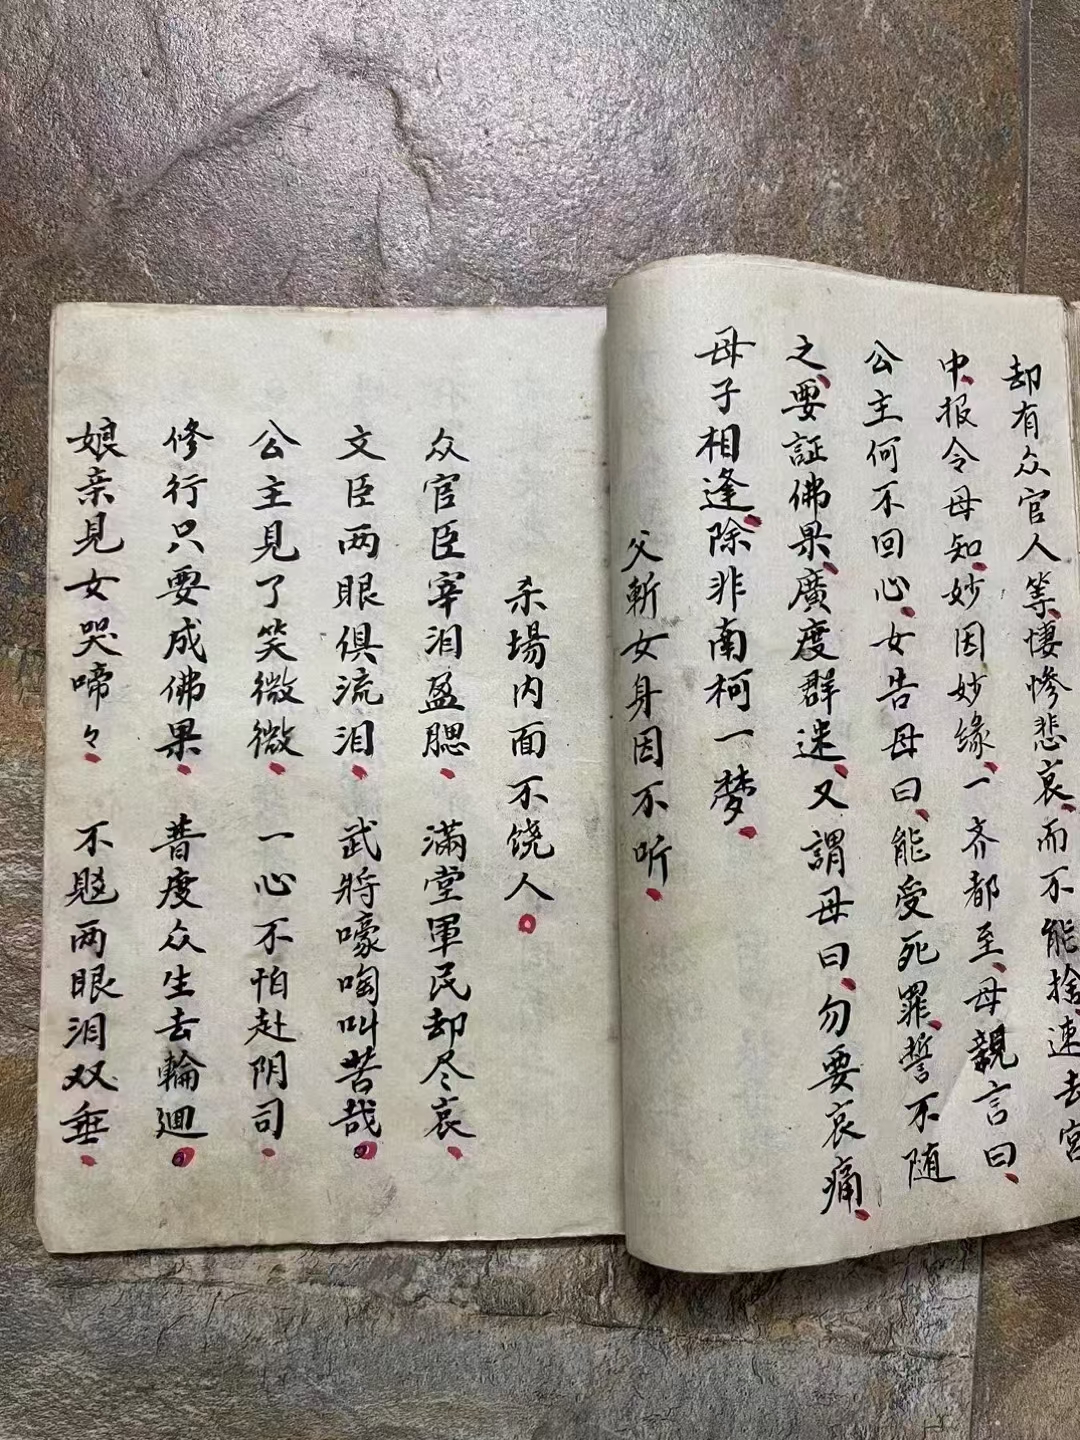 却有众官人等、悽惨悲哀、而不能捨、速去宮
中、报令母知、妙因妙缘、一齐都至、母親言曰、
公主何不回心、女告母曰、能受死罪、誓不随
之、要証佛果、廣度群迷、又謂母曰、勿要哀痛、
母子相逢、除非南柯一梦、
父斬女身因不听、
杀場内面不饶人。
众官臣宰泪盈腮、满堂軍民却尽哀、
文臣两眼俱流泪、武將嚎啕叫苦哉。
公主見了笑微微、一心不怕赴阴司、
修行只要成佛果、普度众生去輪廻。
娘亲見女哭啼々、不觉两眼泪双垂、